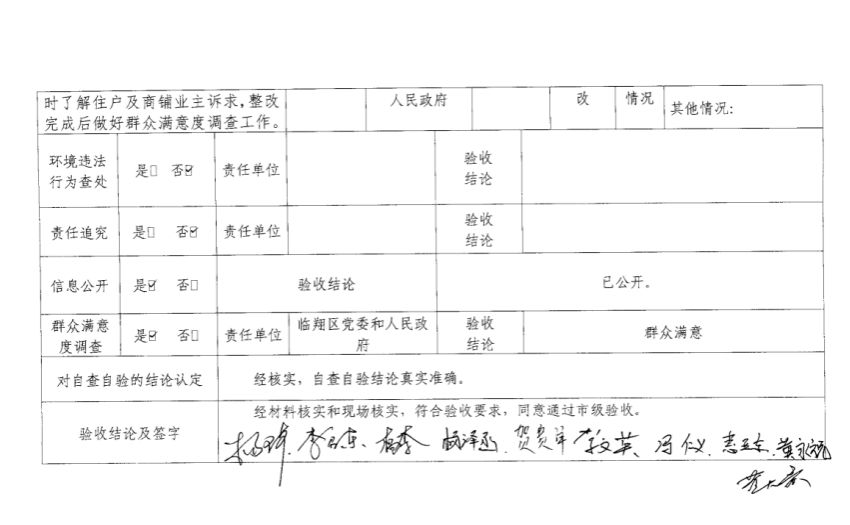 时了解住户及商铺业主诉求，整改
完成后做好群众满意度调查工作。
人民政府
改
情况
其他情况：
环境违法
行为查处
是□ 否☑
责任单位
验收
结论
责任追究
是□ 否☑
责任单位
验收
结论
信息公开
是☑ 否□
验收结论
已公开。
群众满意
度调查
是☑ 否□
责任单位
临翔区党委和人民政
府
验收
结论
群众满意
对自查自验的结论认定
经核实，自查自验结论真实准确。
验收结论及签字
经材料核实和现场核实，符合验收要求，同意通过市级验收。